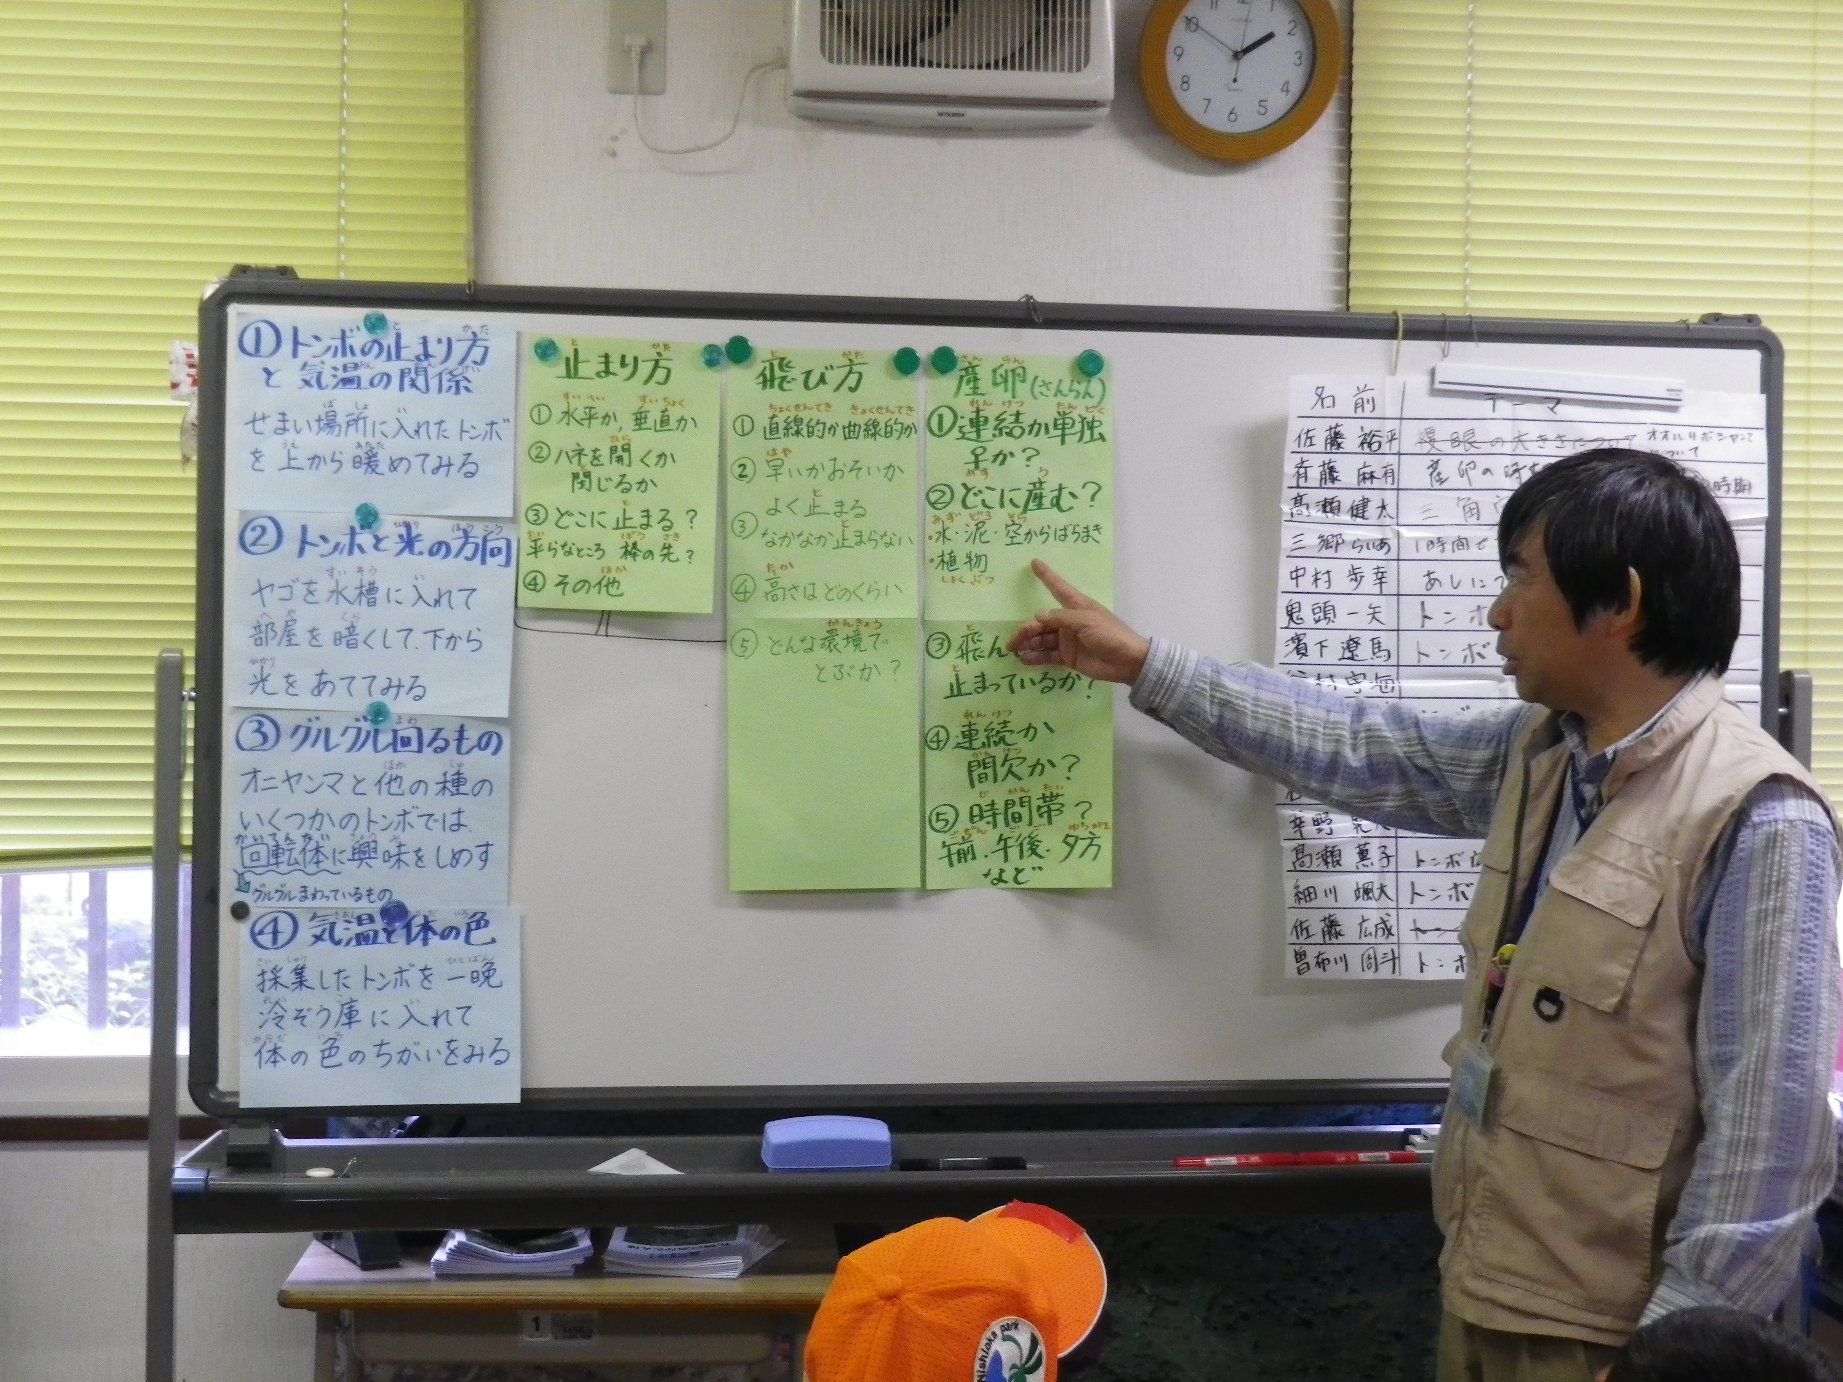 ①トンボの止まり方
と気温の関係
せまい場所に入れたトンボ
を上から暖めてみる
②トンボと光の方向
ヤゴを水槽に入れて
部屋を暗くして、下から
光をあててみる
③グルグル回るもの
オニヤンマと他の種の
いくつかのトンボでは、
回転体に興味をしめす
グルグルまわっているもの
④気温と体の色
採集したトンボを一晩
冷ぞう庫に入れて
体の色のちがいをみる
止まり方
①水平か,垂直か
②ハネを開くか
閉じるか
③どこに止まる?
平らなところ 棒の先?
④その他
飛び方
①直線的か曲線的か
②早いかおそいか
よく止まる
③なかなか止まらない
④高さはどのくらい
⑤どんな環境で
とぶか?
産卵(さんらん)
①連結か単独
早か?
②どこに産む?
・水・泥・空からばらまき
・植物
③飛ん
止まっているか?
④連続か
間欠か?
⑤時間帯?
午前、午後、夕方
など
名前 テーマ
佐藤 裕平
斉藤 麻有 産卵の時
高瀬 健太 三角
三郷らいあ 1時間で
中村 歩幸 あしに
鬼頭 一矢 トンボ
濱下 遼馬 トンボ
高瀬 薫子 トンボ
細川 颯大 トンボ
佐藤 広成 トンボ
曽布川 周斗 トンボ
12 1 2 3 4 5 6 7 8 9 10
1
Nishioka park